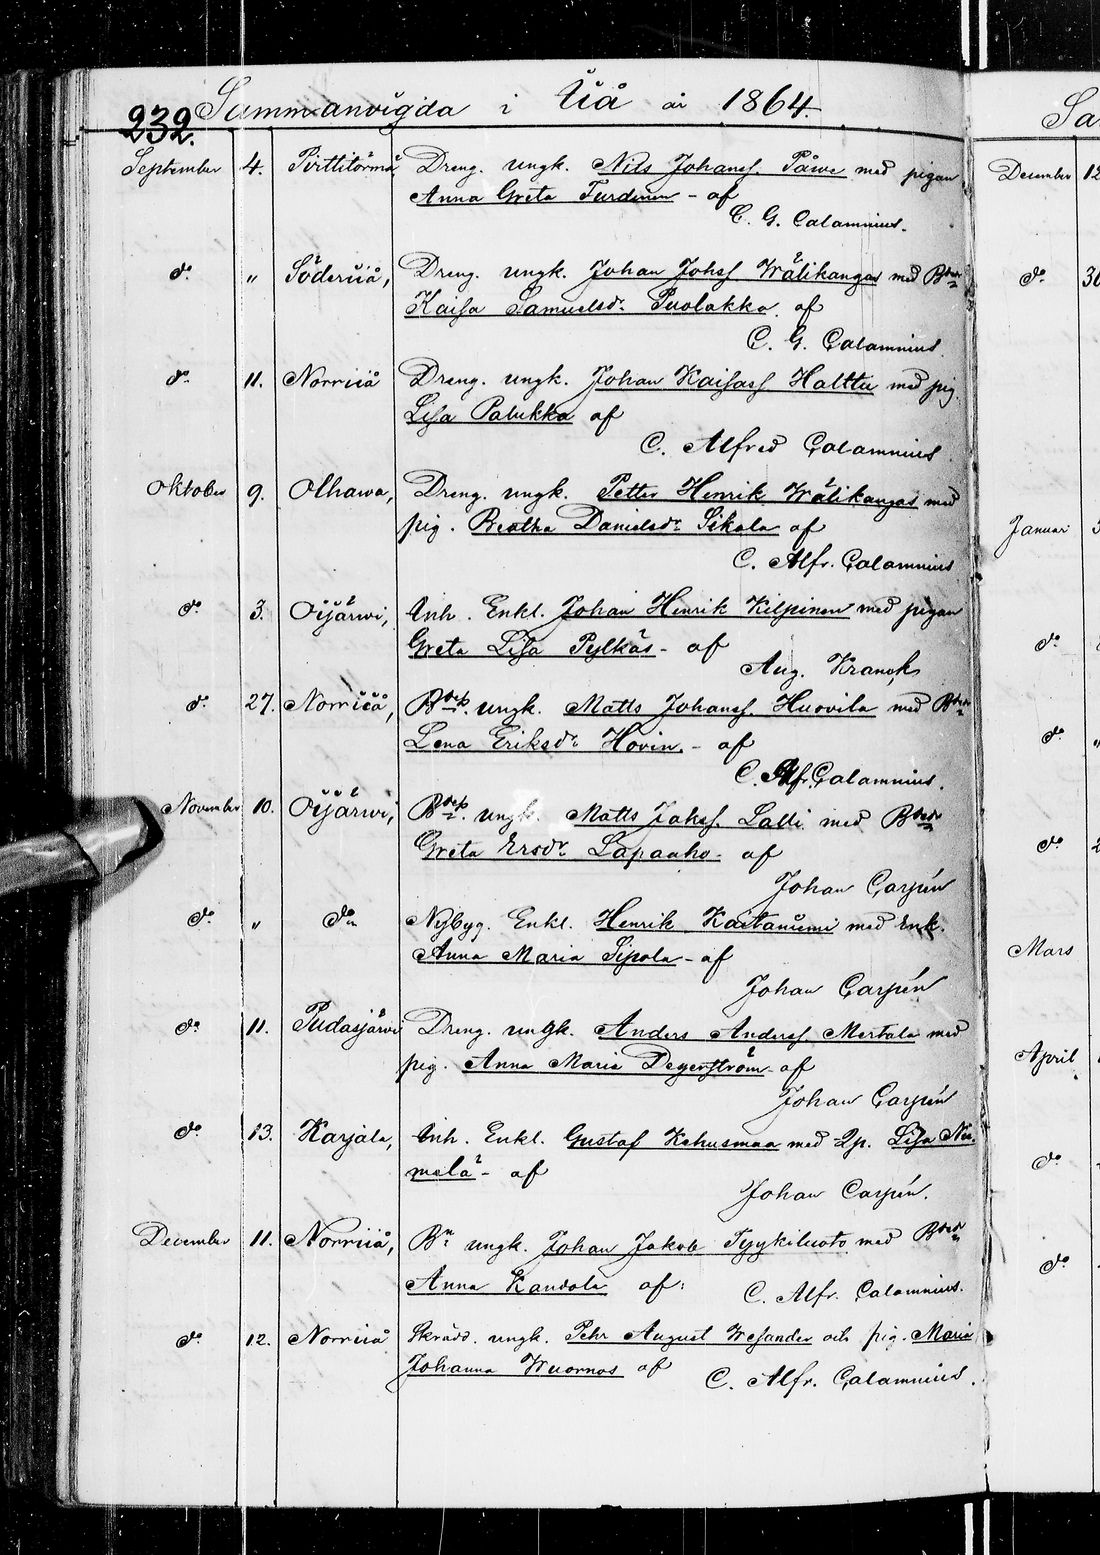 232. Sammanvigda i Uiå år 1864.
September 4. Pirttitörmä Dreng. ungk. Nils Johanss. Påwe med pigan
Anna Greta Turdinen - af
C. G. Calamnius.
do " Söderuiå, Dreng. ungk. Johan Johss Wälikangas med Bdr
Kaisa Samuelsdr Puolakka. af
C. G. Calamnius.
do 11. Norruiå Dreng. ungk. Johan Kaisass Halttu med pig.
Lisa Palukka af
C. Alfred Calamnius
Oktober 9. Olhawa, Dreng. ungk. Petter Henrik Wälikangas med
pig. Beatha Danielsdr Sikala af
C. Alfr. Calamnius
do 3. Oijärwi, Inh. Enkl. Johan Henrik Kilpinen med pigan
Greta Lisa Pylkäs - af
Aug. Kranck
do 27. Norruiå, Bdes. ungk. Matts Johanss. Huovila med Bdr
Lena Eriksdr Hovin. - af
C. Alfr. Calamnius.
November 10. Oijärwi, Bdes. ungk. Matts Jakss. Lalli med Bdr
Greta Ersdr Lapaaho - af
Johan Carpén
do " do Nybyg. Enkl. Henrik Kaitaniemi med Enk.
Anna Maria Sipola - af
Johan Carpén
do 11. Pudasjärwi Dreng. ungk. Anders Anderss. Mertala med
pig. Anna Maria Degerström - af
Johan Carpén
do 13. Karjala, Inh. Enkl. Gustaf Kehusmaa med Qp. Lisa Nie
melä - af
Johan Carpén.
December 11. Norruiå, Bn ungk. Johan Jakob Tyykiluoto med Bdr
Anna Kandola af: C. Alfr. Calamnius.
do 12. Norruiå Skrädd. ungk. Pehr August Wesander och pig. Maria
Johanna Wuornos af C. Alfr. Calamnius.
Sa
Desember 12
do 30
Januar
do
do "
do 2
Mars
April
do
do